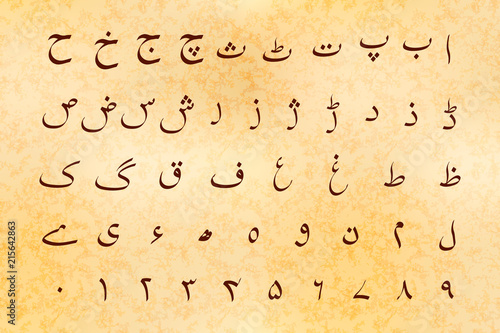 ا ب پ ت ٹ ث چ ج خ ح
ڈ ذ د ڑ ژ ز ش س ض ص
ظ ط غ ع ف ق گ ک
ل م ن ں ہ و ھ ء ی ے
۰ ۱ ۲ ۳ ۴ ۵ ۶ ۷ ۸ ۹
#215642863